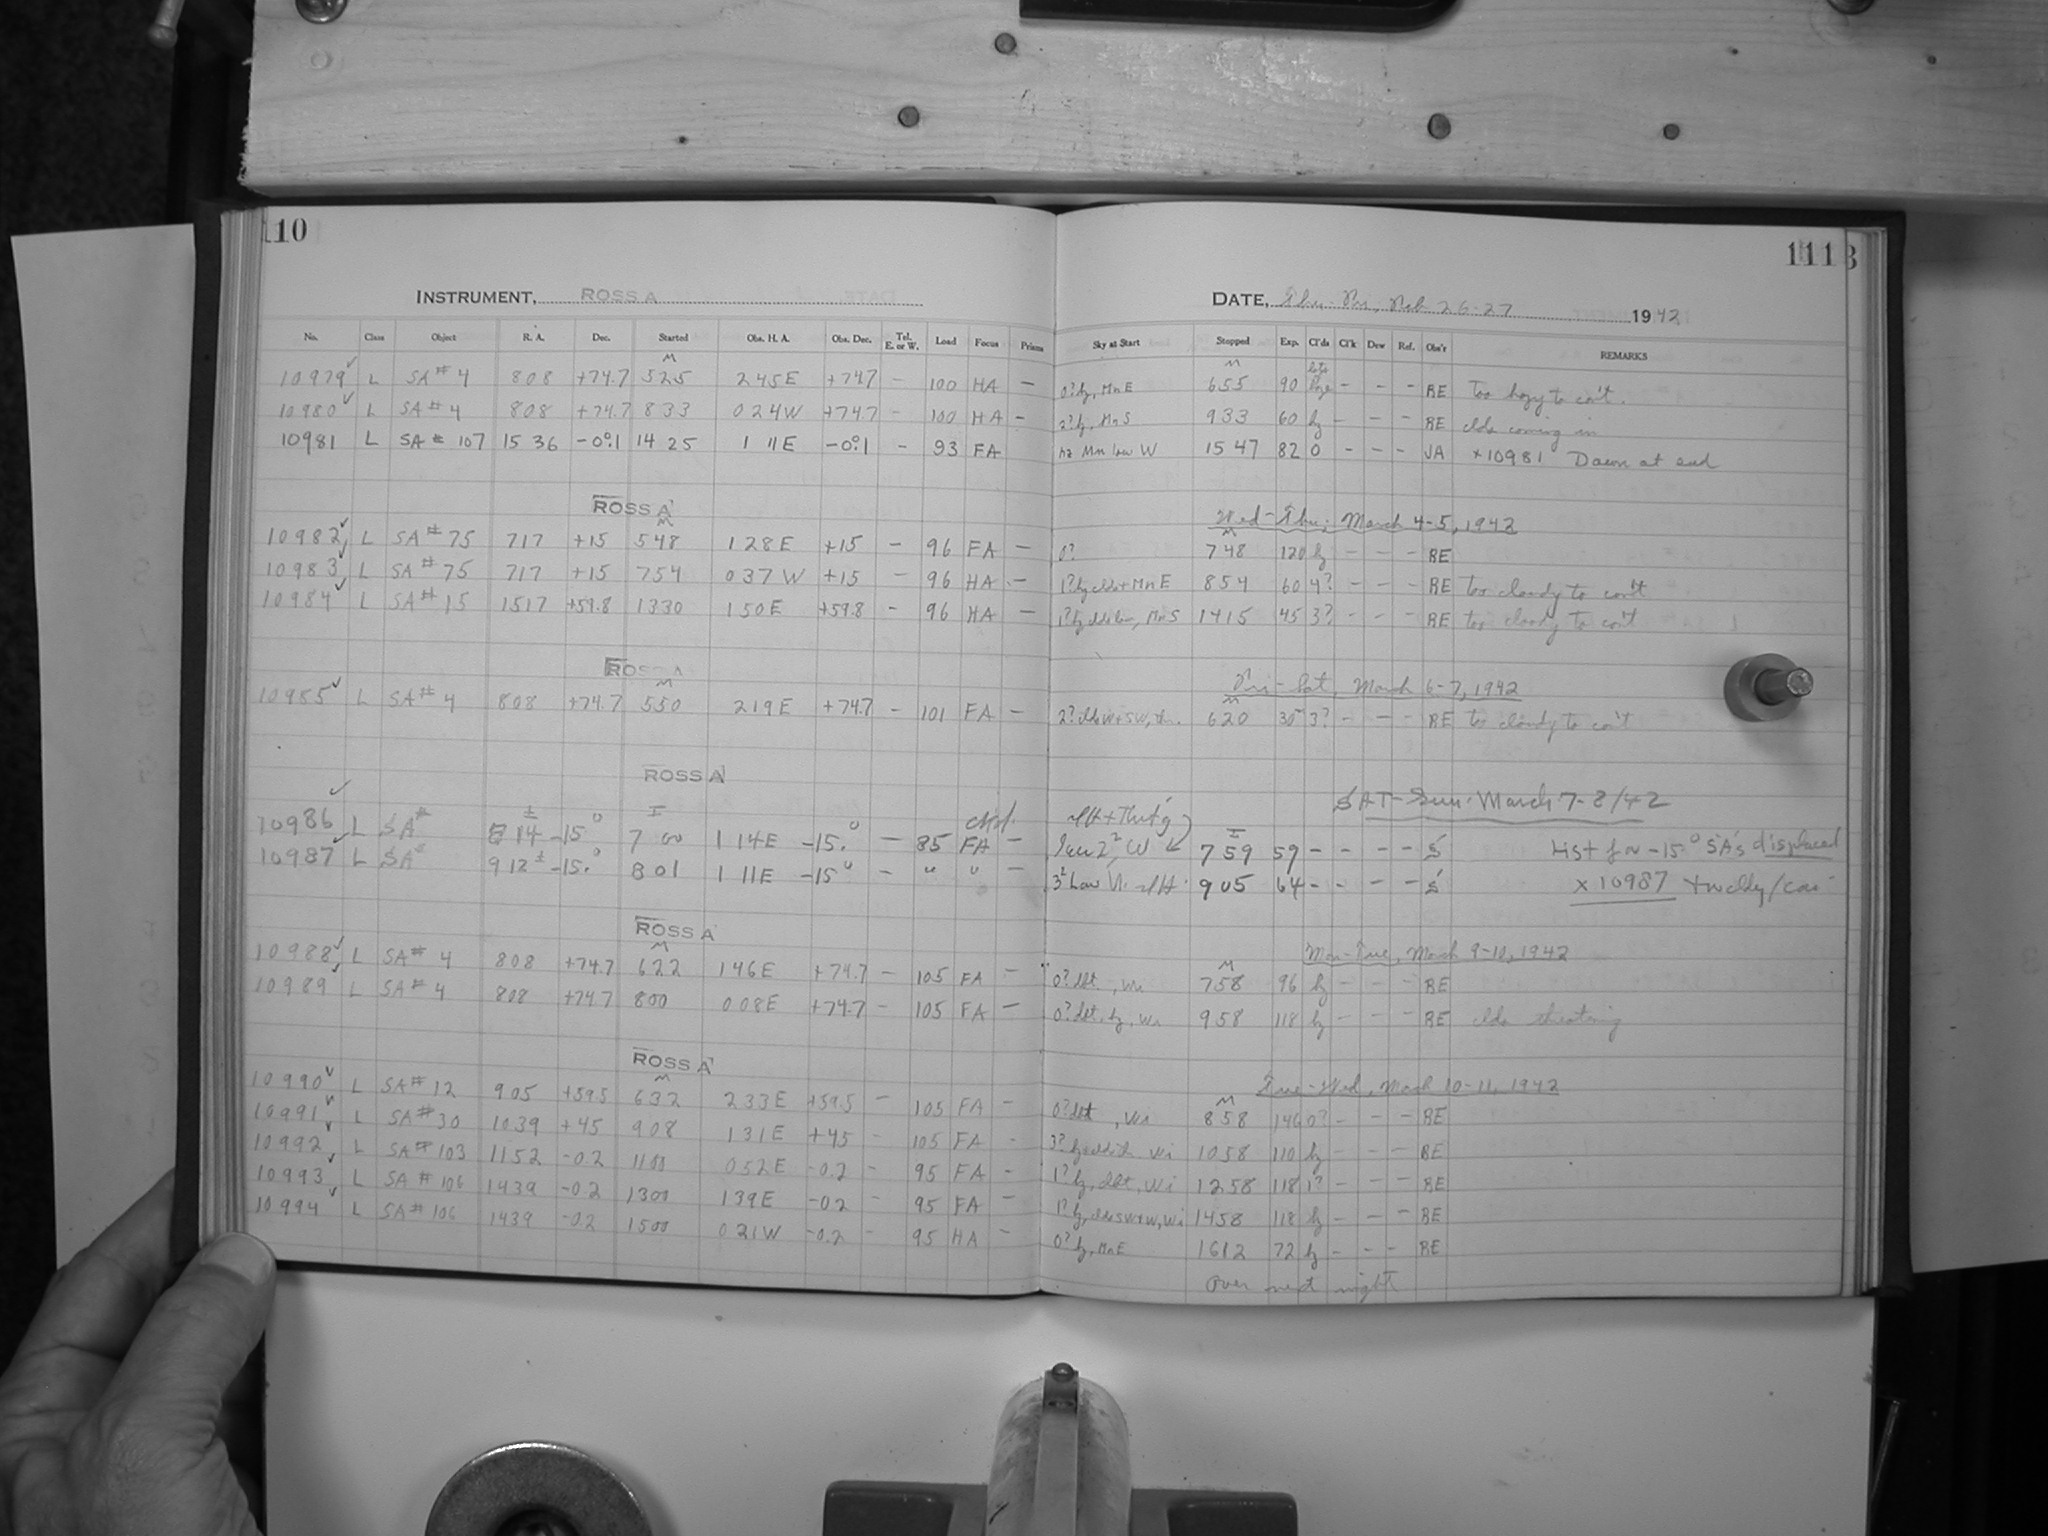 110
1113
INSTRUMENT, ROSS A DATE, Thu-Fri, Feb 26-27 1942
No. Class Object R. A. Dec. Started Obs. H. A. Obs. Dec. Tel. E. or W. Load Focus Prisms Sky at Start Stopped Exp. Cl'ds Cl'k Dew Ref. Obs'r REMARKS
M M
10979 ✓ L SA # 4 808 +74.7 525 245E +74.7 - 100 HA - 0? hz, Mn E 655 90 - - - RE Too hazy to con't.
10980 ✓ L SA # 4 808 +74.7 833 024W +74.7 - 100 HA - 2? hz, Mn S 933 60 hz - - - RE clds coming in
10981 L SA # 107 15 36 -0°.1 14 25 1 11E -0°.1 - 93 FA hz Mn low W 15 47 82 0 - - - JA × 10981 Dawn at end
ROSS A Wed-Thu, March 4-5, 1942
M M
10982 ✓ L SA # 75 717 +15 548 128E +15 - 96 FA - 0? 748 120 hz - - - RE
10983 ✓ L SA # 75 717 +15 754 037W +15 - 96 HA - 1? hz clds + Mn E 854 60 4? - - - RE too cloudy to con't
10984 ✓ L SA # 15 1517 +59.8 1330 150E +59.8 - 96 HA - 1? hz, Mn S 1415 45 3? - - - RE too cloudy to con't
ROSS A Fri-Sat, March 6-7, 1942
M M
10985 ✓ L SA # 4 808 +74.7 550 219E +74.7 - 101 FA - 2? clds W+SW, 620 30 3? - - - RE too cloudy to con't
ROSS A SAT-Sun. March 7-8/42
10986 ✓ L SA # 8 14 ± -15.° 7 00 1 14E -15.° - 85 FA - 7 59 59 - - - - S List for -15.° SA's displaced
10987 ✓ L SA # 9 12 ± -15.° 8 01 1 11E -15° - " " - 3? Low 9 05 64 - - - - S × 10987
ROSS A Mon-Tue, March 9-10, 1942
M M
10988 ✓ L SA # 4 808 +74.7 622 146E +74.7 - 105 FA - 0? dst, Wi 758 96 hz - - - RE
10989 ✓ L SA # 4 808 +74.7 800 008E +74.7 - 105 FA - 0? dst, hz, Wi 958 118 hz - - - RE clds threatening
ROSS A Tue-Wed, March 10-11, 1942
M M
10990 ✓ L SA # 12 905 +59.5 632 233E +59.5 - 105 FA - 0? dst, Wi 858 146 0? - - - RE
10991 ✓ L SA # 30 1039 +45 908 131E +45 - 105 FA - 3? Wi 1058 110 hz - - - RE
10992 ✓ L SA # 103 1152 -0.2 1100 052E -0.2 - 95 FA - 1? hz, dst, Wi 1258 118 1? - - - RE
10993 ✓ L SA # 106 1439 -0.2 1300 139E -0.2 - 95 FA - 1? hz, clds SW+W, Wi 1458 118 hz - - - RE
10994 ✓ L SA # 106 1439 -0.2 1500 021W -0.2 - 95 HA - 0? hz, Mn E 1612 72 hz - - - RE
Over next night